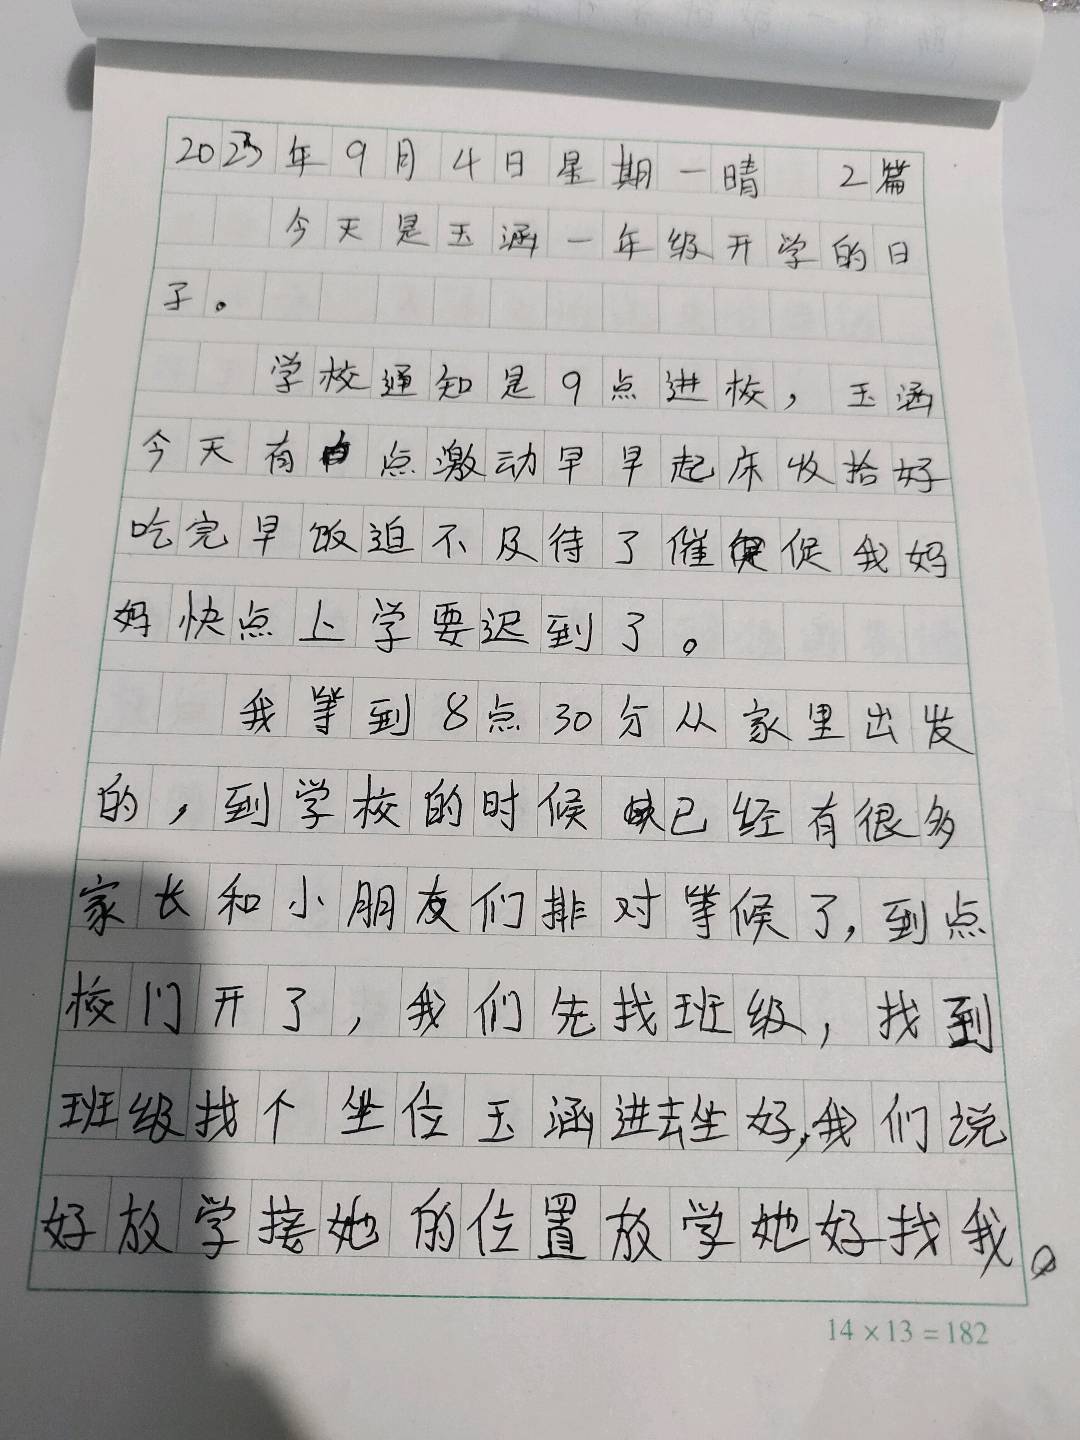 2023年9月4日星期一晴 2篇
今天是玉涵一年级开学的日
子。
学校通知是9点进校，玉涵
今天有点激动早早起床收拾好
吃完早饭迫不及待了催促我妈
妈快点上学要迟到了。
我等到8点30分从家里出发
的，到学校的时候已经有很多
家长和小朋友们排对等候了，到点
校门开了，我们先找班级，找到
班级找个坐位玉涵进去坐好，我们说
好放学接她的位置放学她好找我。
14×13=182